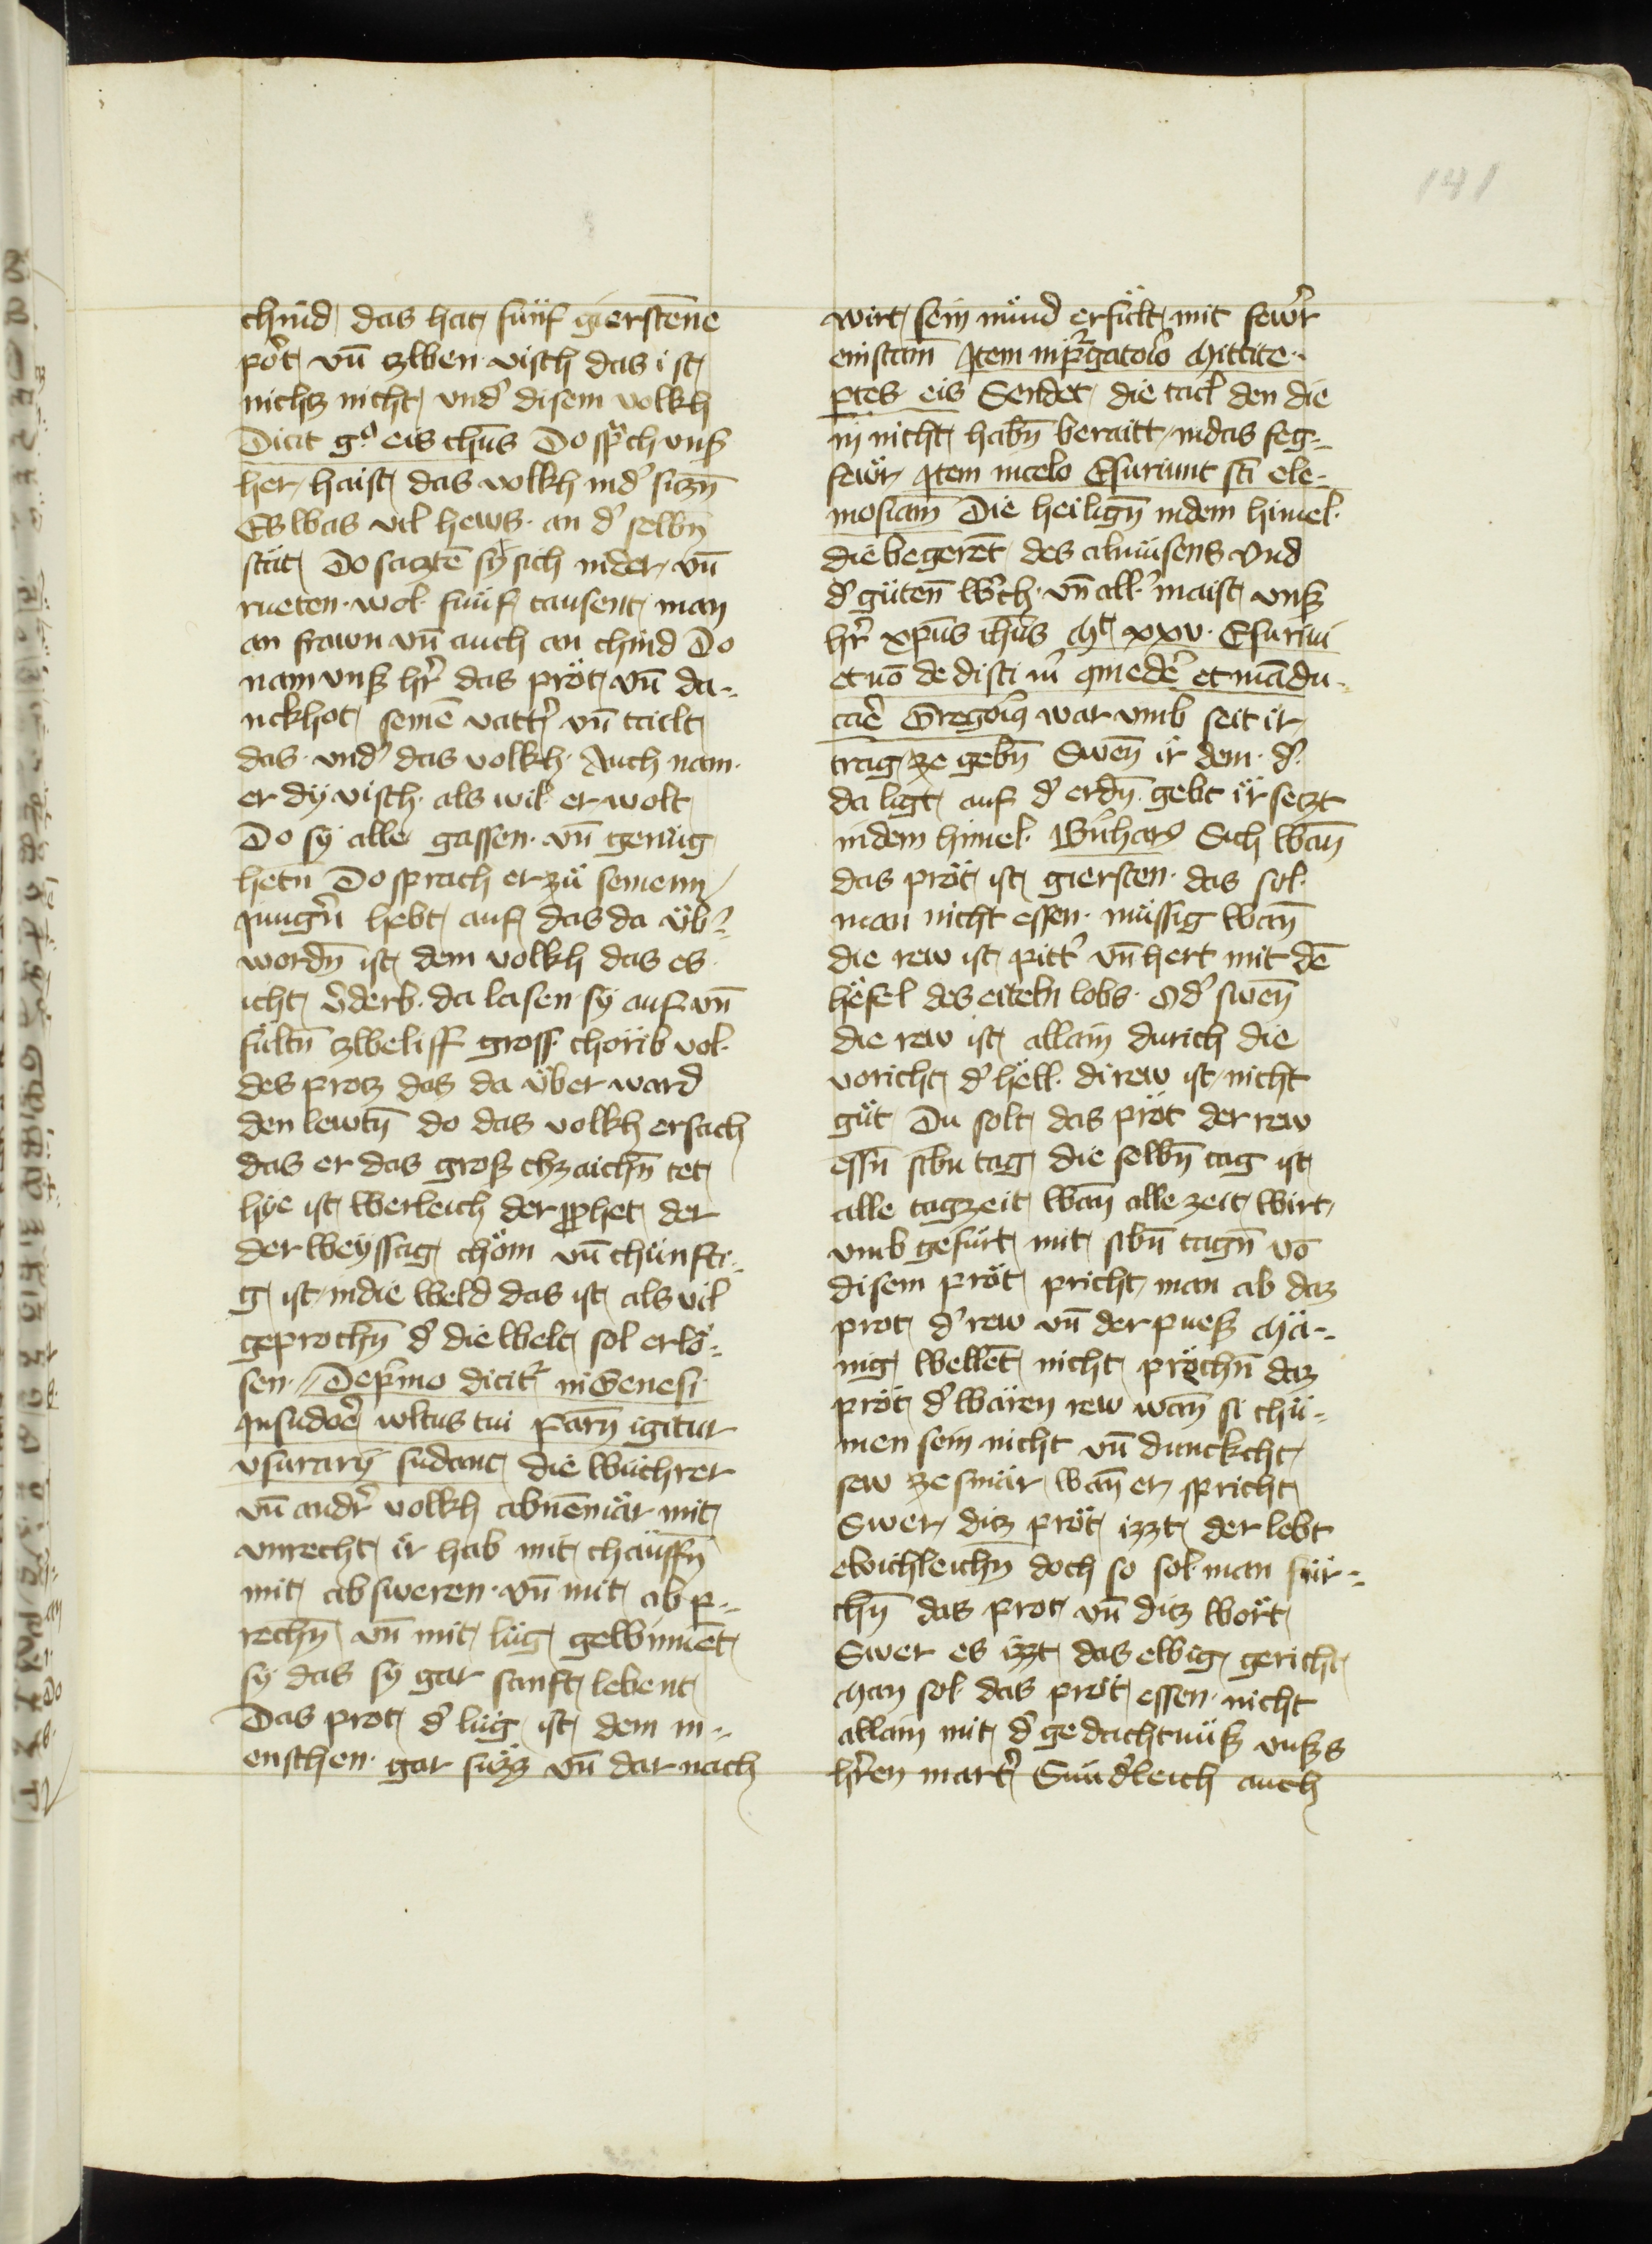 141
chind das hat fünf gierstene
pöt vn̄ zwen visch das ist
nichtz nicht vnd' disem volkh
Dicit g° eis ihūs Do spͣch vnß
her haist das volkh nid' siczn̄
Es was vil hews an d' selbn̄
stat Do saczten sÿ sich nider vn̄
rueten wol fünf tausent man
an frawn vn̄ auch an chind Do
nam vnß hr̄ das pröt vn̄ da-
nckhot seinē vatt'r vn̄ tailt
das vnd' das volkh Auch nam
er dÿ visch als vil er wolt
Do sÿ alle gassen vn̄ genüg
hetn Do sprach er zü seinenn
jungn̄ hebt auf das da üb'-
wordn̄ ist dem volkh das es
icht v̄derb da lasen sÿ auf vn̄
fultn̄ zweliff gross chörib vol
des protz das da über ward
den lewtn̄ do das volkh ersach
das er das groß chzaichn̄ tet
hÿe ist werleich der pphet der
der weÿssag chöm vn̄ chünfti-
g ist in die weld das ist als vil
geprochn̄ d' die welt sol erlö-
sen De pͥmo dicitͬ in Genesi
In sudoē wltus tui Parn̄ igitur
vsurarÿ sudant die wüchrer
vn̄ andr̄ volkh abnemär mit
vnrecht ir hab mit chäuffn̄
mit absweren vn̄ mit ab p-
rechn̄ vn̄ mit lüg gewinnēt
sÿ das sÿ gar sanft lebent
Das prot d' lüg ist dem m-
enschen gar süzz vn̄ dar nach
wirt sein mund erfült mit fewr̄
einstain̄ Item in pͬgatoͥo Mittite
ptes eis Sendet die tail den die
in nicht habn̄ beraitt in das feg-
fewr Item in celo Esuriunt sci ele-
mosiam Die heilign̄ in dem himel
die begerēt des almüsens vnd
d' güten w'ch vn̄ all' maist vnß
hr̄ xpūs ihūs Mt xxv Esuriui
et nō dedisti m' qmedē et mādu-
caē Gregoīg war vmb seit ir
trag ze gebn̄ Swen̄ ir dem d'
da ligt auf d' erdn̄ gebt ir seczt
in dem himel Sich wan̄
das pröt ist giersten das sol
man nicht essen müssig wan̄
die rew ist pitt' vn̄ hert mit dē
hefel des eiteln lobs Od' swen̄
die rew ist allain durich die
voricht d' hell di rew ist nicht
güt Du solt das pröt der rew
essn̄ sibn tag die selbn̄ tag ist
alle tagzeit wan̄ alle zeit wirt
vmb gefürt mit sibn̄ tagn̄ vō
disem pröt pricht man ab daz
prot d' rew vn̄ der pueß Mä-
nig wellēt nicht pröchn̄ daz
pröt d' wären rew wan̄ si chü-
men sein nicht vn̄ dunckcht
sew ze swär wan̄ er spricht
Swer ditz pröt izzt der lebt
ewichleichn̄ doch so sol man für-
chn̄ das prot vn̄ ditz wort
Swer es izzt das ewig gericht
Man sol das pröt essen nicht
allain mit d' gedachtnüß vnßs
hr̄en mart'r Sünd'leich auch